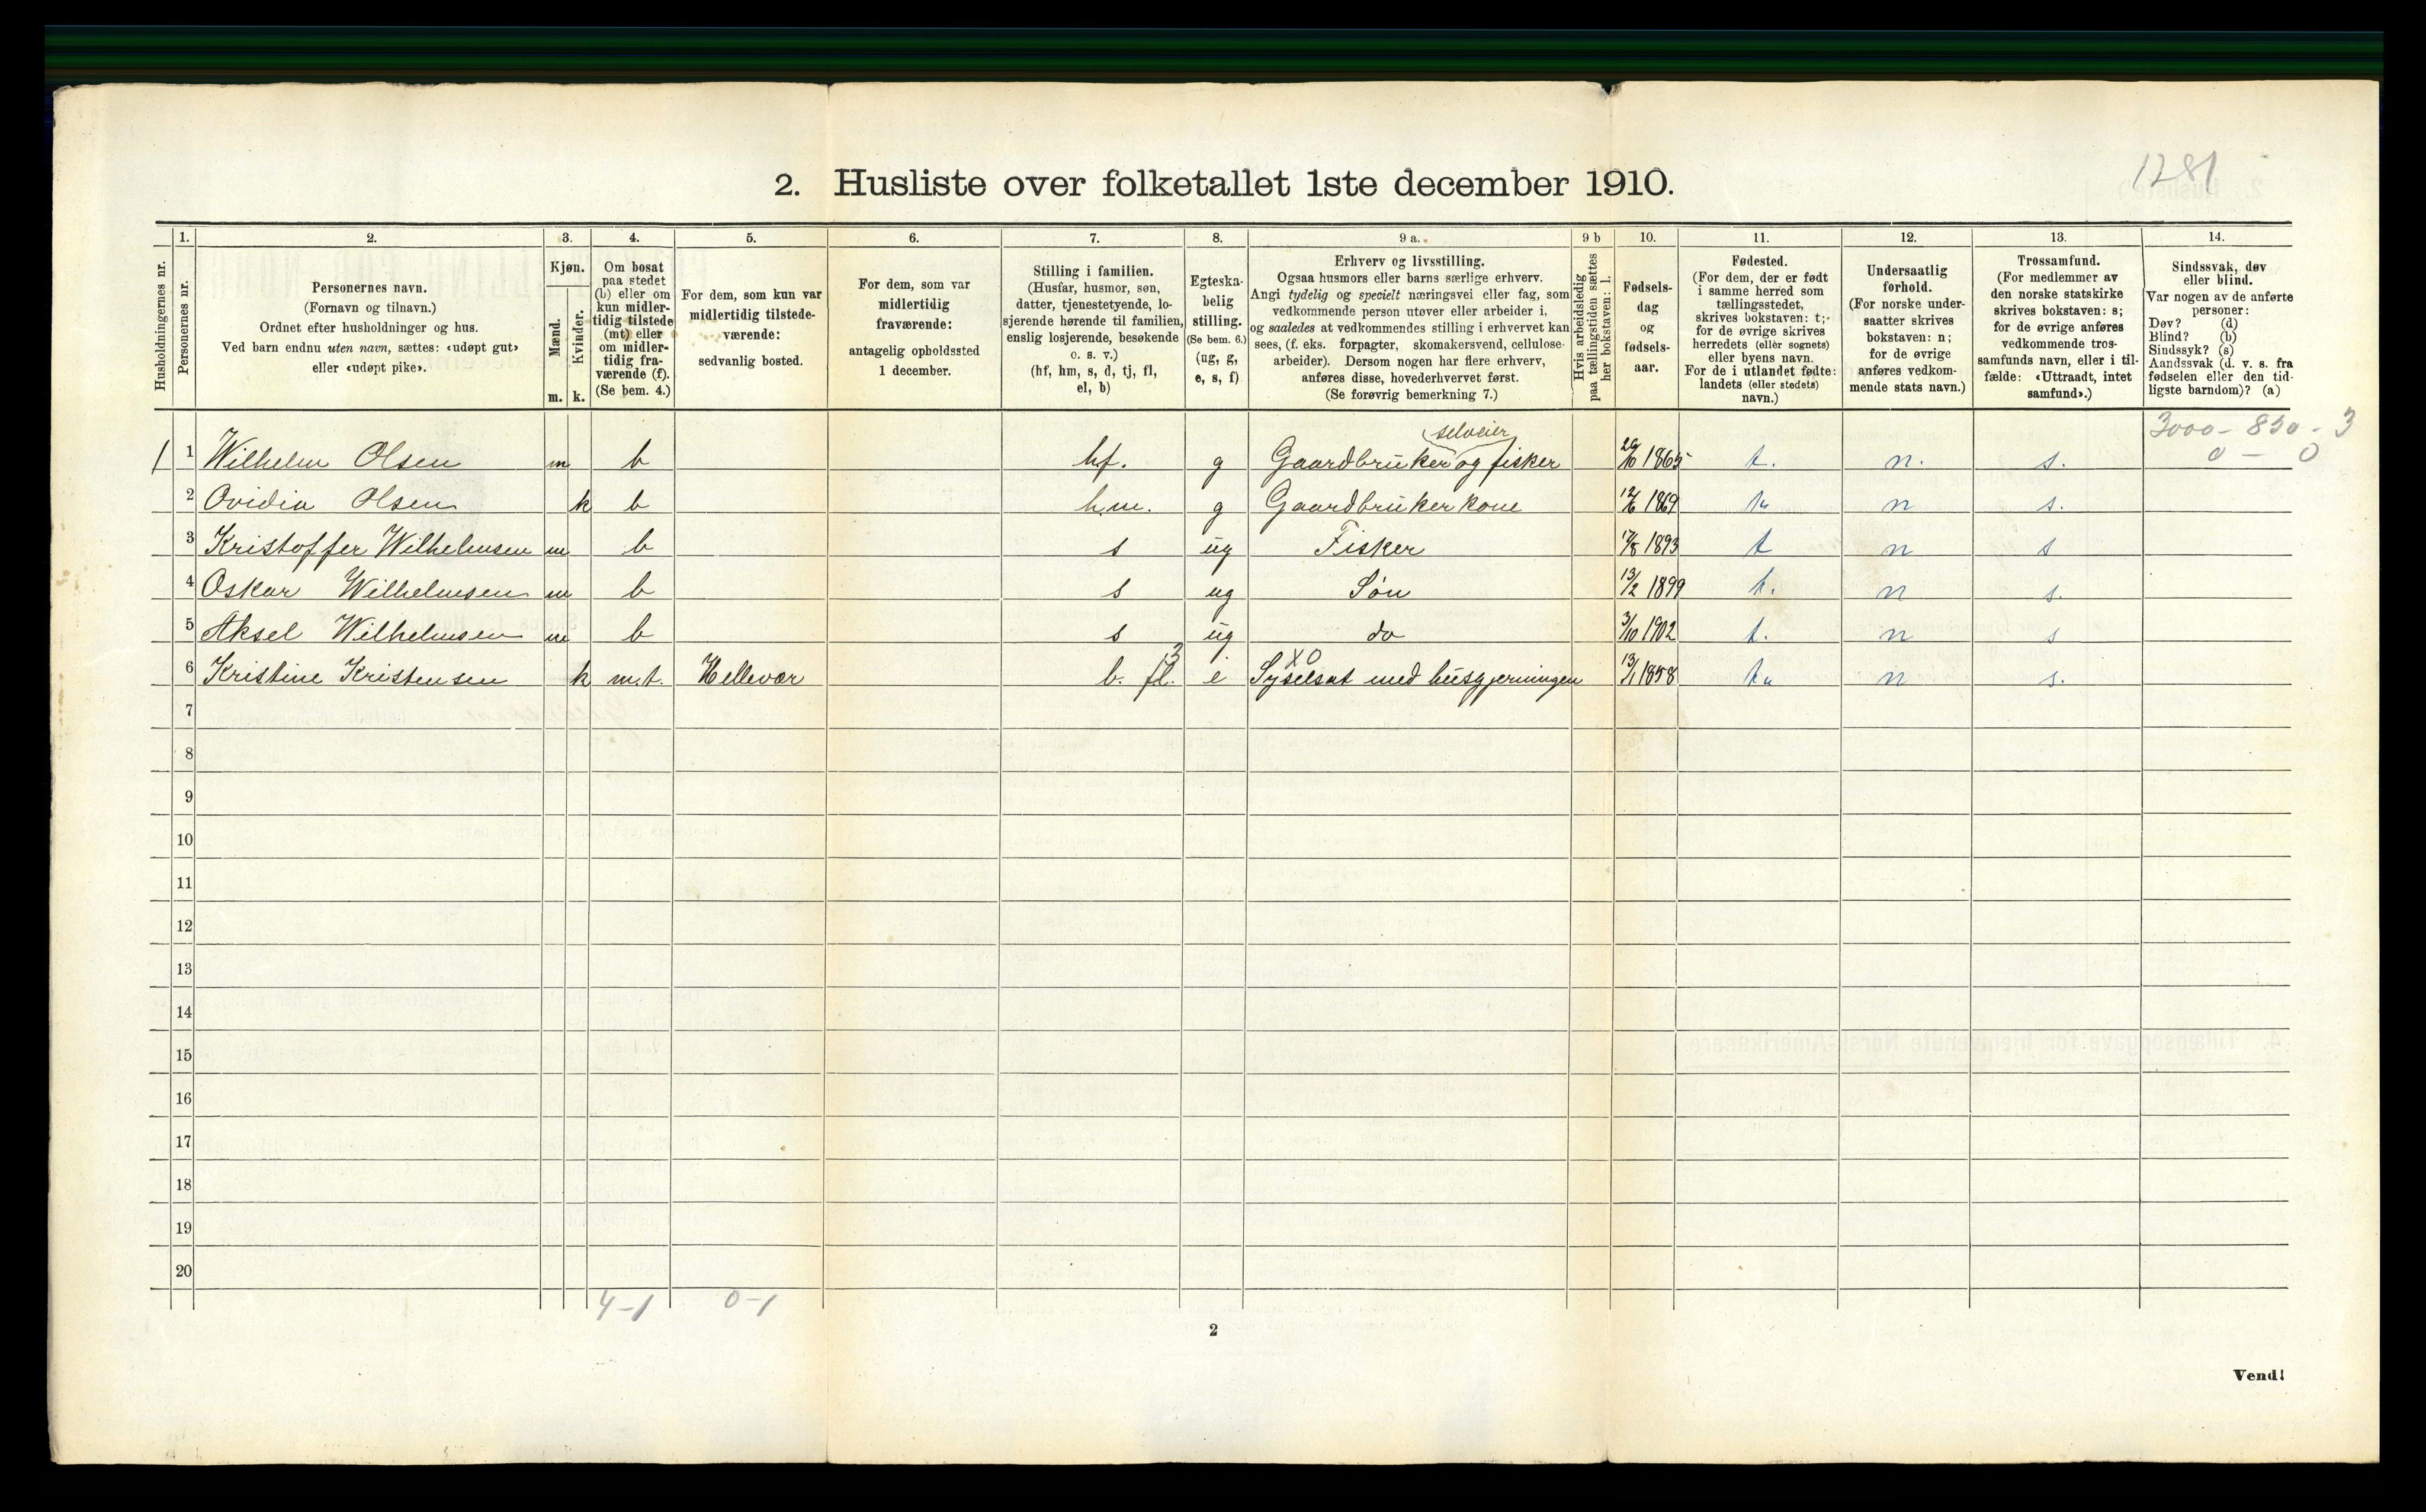 1281
2. Husliste over folketallet 1ste december 1910.
Husholdningernes nr.
1. Personernes nr.
2. Personernes navn.
(Fornavn og tilnavn.)
Ordnet efter husholdninger og hus.
Ved barn endnu uten navn, sættes: «udøpt gut»
eller «udøpt pike».
3. Kjøn.
Mænd. Kvinder.
m. k.
4. Om bosat
paa stedet
(b) eller om
kun midler-
tidig tilstede
(mt) eller
om midler-
tidig fra-
værende (f).
(Se bem. 4.)
5. For dem, som kun var
midlertidig tilstede-
værende:
sedvanlig bosted.
6. For dem, som var
midlertidig
fraværende:
antagelig opholdssted
1 december.
7. Stilling i familien.
(Husfar, husmor, søn,
datter, tjenestetyende, lo-
sjerende hørende til familien,
enslig losjerende, besøkende
o. s. v.)
(hf, hm, s, d, tj, fl,
el, b)
8. Egteska-
belig
stilling.
(Se bem. 6.)
(ug, g,
e, s, f)
9 a. Erhverv og livsstilling.
Ogsaa husmors eller barns særlige erhverv.
Angi tydelig og specielt næringsvei eller fag, som
vedkommende person utøver eller arbeider i,
og saaledes at vedkommendes stilling i erhvervet kan
sees, (f. eks. forpagter, skomakersvend, cellulose-
arbeider). Dersom nogen har flere erhverv,
anføres disse, hovederhvervet først.
(Se forøvrig bemerkning 7.)
9 b Hvis arbeidsledig
paa tællingstiden sættes
her bokstaven: l.
10. Fødsels-
dag
og
fødsels-
aar.
11. Fødested.
(For dem, der er født
i samme herred som
tællingsstedet,
skrives bokstaven: t;
for de øvrige skrives
herredets (eller sognets)
eller byens navn.
For de i utlandet fødte:
landets (eller stedets)
navn.)
12. Undersaatlig
forhold.
(For norske under-
saatter skrives
bokstaven: n;
for de øvrige
anføres vedkom-
mende stats navn.)
13. Trossamfund.
(For medlemmer av
den norske statskirke
skrives bokstaven: s;
for de øvrige anføres
vedkommende tros-
samfunds navn, eller i til-
fælde: «Uttraadt, intet
samfund».)
14. Sindssvak, døv
eller blind.
Var nogen av de anførte
personer:
Døv? (d)
Blind? (b)
Sindssyk? (s)
Aandssvak (d. v. s. fra
fødselen eller den tid-
ligste barndom)? (a)
3000 - 850 - 3
0 - 0
selveier
1 1 Wilhelm Olsen m b hf. g Gaardbruker og fisker 29/10 1865 t. n. s.
2 Ovidia Olsen k b h.m. g Gaardbruker kone 1869 n s.
3 Kristoffer Wilhelmsen m b s ug Fisker 17/8 1893 t n s
4 Oskar Wilhelmsen m b s ug Søn 13/2 1899 t. n s.
5 Aksel Wilhelmsen m b s ug do 3/10 1902 t. n s
3 XO
6 Kristine Kristensen k m.t. Hellevær b. fl. e Syselsat med husgjerningen 13/1 1858 n s.
7
8
9
10
11
12
13
14
15
16
17
18
19
20
4-1 0-1
2
Vend!